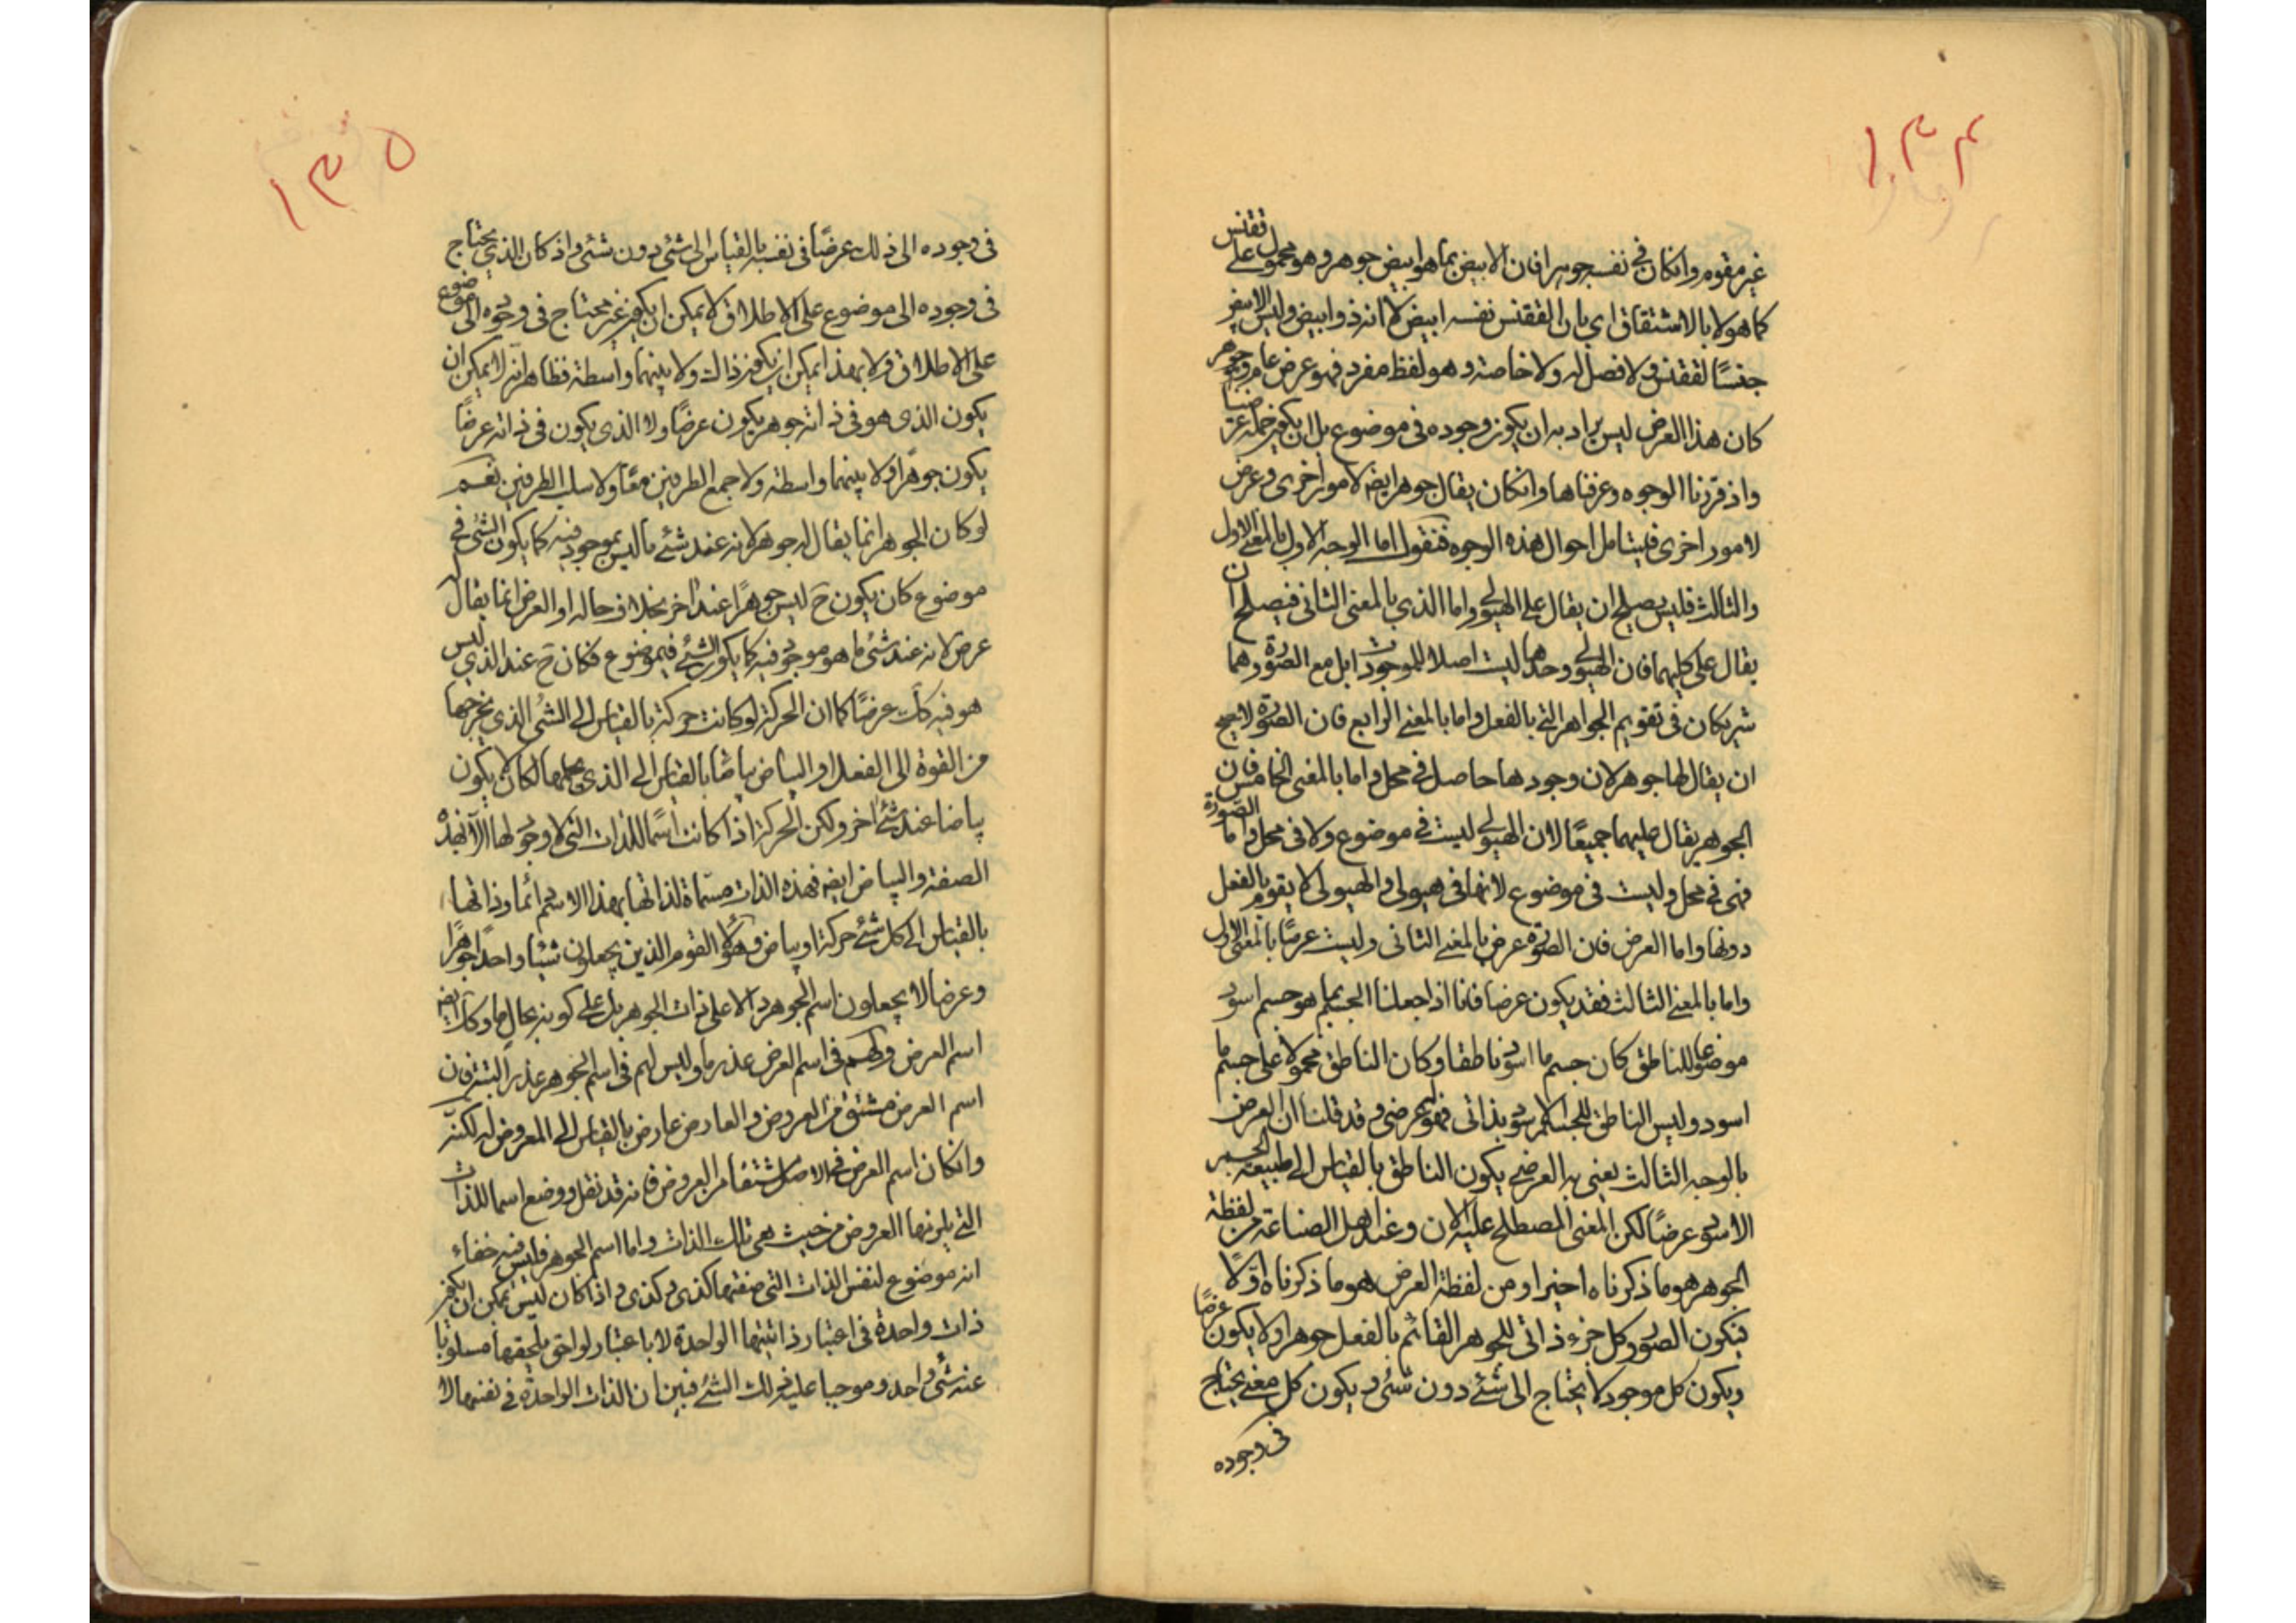 ١٣٤
غير مقوم وانكان فى نفسه جوهرا فان الابيض بما هو ابيض جوهر وهو محمول على ققنس
كما هو لا بالاشتقاق اي بان الققنس نفسه ابيض لا انه ذو ابيض وليس الابيض
جنسًا لققنس ولا فصل له ولا خاصة وهو لفظ مفرد فهو عرض عام وجوهر
كان هذا العرض ليس يراد به ان يكون وجوده فى موضوع بل ان يكون حمله عرضيا
واذ قررنا الوجوه وعرفناها وانكان يقال جوهر ايضه لامور اخرى وعرض
لامور اخرى فليتامل احوال هذه الوجوه فنقول اما الوجه الاول بالمعنى الاول
والثالث فليس يصلح ان يقال على الهيولى واما الذي بالمعنى الثانى فيصلح ان
يقال على كليهما فان الهيولى وحدها ليست اصلا للموجودات بل مع الصورة وهما
شريكان فى تقويم الجواهر التى بالفعل واما بالمعنى الرابع فان الصورة لا يجب
ان يقال لها جوهر لان وجودها حاصل فى محل واما بالمعنى الخامس فان
الجوهر يقال عليهما جميعًا لان الهيولى ليست فى موضوع ولا فى محل واما الصورة
فهى فى محل وليست فى موضوع لانها فى هيولى والهيولى لا يقوم بالفعل
دونها واما العرض فان الصورة عرض بالمعنى الثانى وليست عرضًا بالمعنى الاول
واما بالمعنى الثالث فقد يكون عرضا فانا اذا جعلنا الجسم بما هو جسم اسود
موضوعا للناطق كان جسم ما اسود ناطقا وكان الناطق محمولا على جسم ما
اسود وليس الناطق للجسم الاسود بذاتى فهو عرضى وقد قلنا ان العرض
بالوجه الثالث يعنى به العرضى يكون الناطق بالقياس الى طبيعة الجسم
الاسود عرضًا لكن المعنى المصطلح عليه الان وعند اهل الصناعة من لفظة
الجوهر هو ما ذكرناه اخيرا ومن لفظة العرض هو ما ذكرناه اولًا
فيكون الصور وكل جزء ذاتى للجوهر القائم بالفعل جوهرا ولا يكون عرضًا
ويكون كل موجود لا يحتاج الى شئ دون شئ ويكون كل معنى يحتاج
فى وجوده
١٣٥
فى وجوده الى ذلك عرضًا فى نفسه بالقياس الى شئ دون شئ واذ كان الذي يحتاج
فى وجوده الى موضوع على الاطلاق لا يمكن ان يكون غير محتاج فى وجوده الى موضوع
على الاطلاق ولا بهذا يمكن ان يكون ذالك ولا بينهما واسطة فظاهر انه لا يمكن ان
يكون الذى هو فى ذاته جوهر يكون عرضًا ولا الذى يكون فى ذاته عرضًا
يكون جوهرًا ولا بينهما واسطة ولا جمع الطرفين معًا ولا سلب الطرفين نعم
لو كان الجوهر انما يقال له جوهر لانه عند شئ ما ليس بموجود فيه كما يكون الشئ فى
موضوع كان يكون ح ليس جوهرًا عند اخر بخلاف حاله او العرض انما يقال له
عرض لانه عند شئ ما هو موجود فيه كما يكون الشئ فى موضوع فكان ح عند الذي ليس
هو فيه كك عرضًا كما ان الحركة لو كانت حركة بالقياس الى الشئ الذي يخرجها
من القوة الى الفعل او البياض بياضا بالقياس الى الذي يحملها لكان لا يكون
بياضا عند شئ اخر ولكن الحركة اذا كانت اسمًا للذات التى لا وجود لها الا بهذه
الصفة والبياض ايضه فهذه الذات مسماة لذاتها بهذا الاسم دائما وذاتها
بالقياس الى كل شئ حركة او بياض وهؤلاء القوم الذين يجعلون شيئا واحدًا جوهرًا
وعرضا لا يجعلون اسم الجوهر دالا على ذات الجوهر بل على كونه بحال ما وكك ايضه
اسم العرض ولهم فى اسم العرض عذر ما وليس لهم فى اسم الجوهر عذر البتة فان
اسم العرض مشتق من العروض والعارض عارض بالقياس الى المعروض له لكنه
وانكان اسم العرض فى الاصل مشتقا من العروض فانه قد نقل ووضع اسما للذات
التى يلزمها العروض من حيث هى تلك الذات واما اسم الجوهر فليس فيه خفاء
انه موضوع لنفس الذات التى صفتها كذى وكذى واذا كان ليس يمكن ان يكون
ذات واحدة فى اعتبار ذاتيتها الواحدة لا باعتبار لواحق يلحقها مسلوبا
عنه شئ واحد وموجبا عليه ذلك الشئ فبين ان الذات الواحدة فى نفسها لا